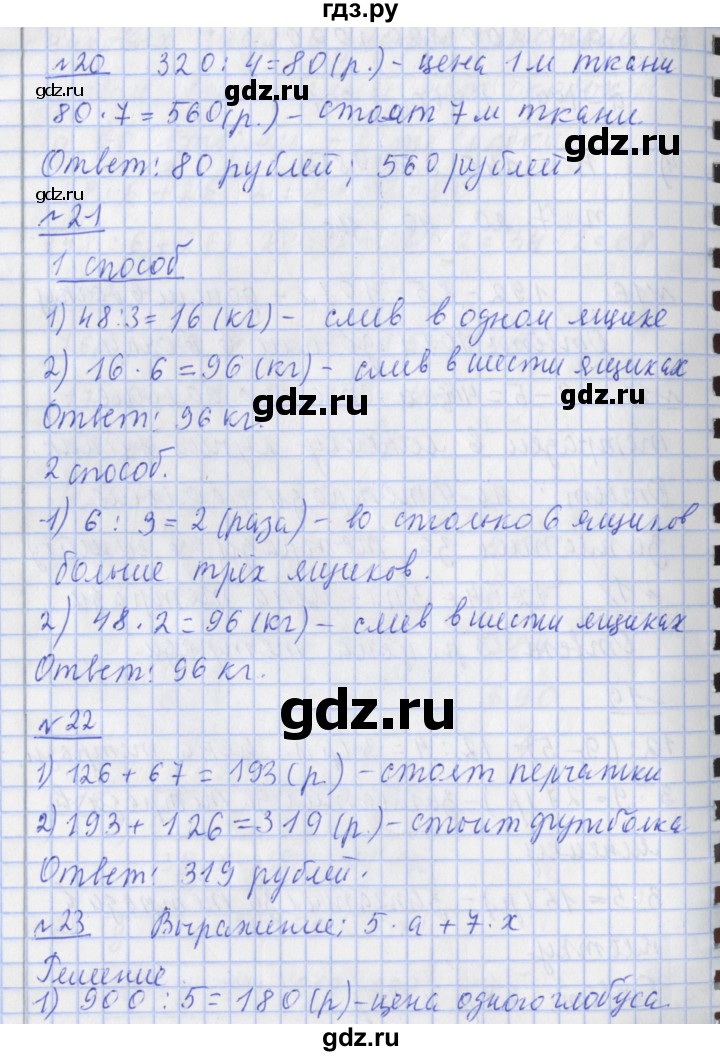 гдз.ру
№20 320 : 4 = 80 (р.) - цена 1 м ткани
gdz.ru
80 · 7 = 560 (р.) - стоят 7 м ткани
gdz.ru
gdz.ru
Ответ: 80 рублей; 560 рублей.
gdz.ru
№21
1 способ
1) 48 : 3 = 16 (кг) - слив в одном ящике
gdz.ru
2) 16 · 6 = 96 (кг) - слив в шести ящиках
gdz.ru
gdz.ru
Ответ: 96 кг.
2 способ.
1) 6 : 3 = 2 (раза) - во столько 6 ящиков
gdz.ru
gdz.ru
больше трёх ящиков.
2) 48 · 2 = 96 (кг) - слив в шести ящиках
Ответ: 96 кг.
gdz.ru
№22
1) 126 + 67 = 193 (р.) - стоят перчатки
gdz.ru
gdz.ru
2) 193 + 126 = 319 (р.) - стоит футболка
Ответ: 319 рублей.
gdz.ru
gdz.ru
№23 Выражение: 5 · а + 7 · х
Решение
1) 900 : 5 = 180 (р) - цена одного глобуса.
gdz.ru
gdz.ru
gdz.ru